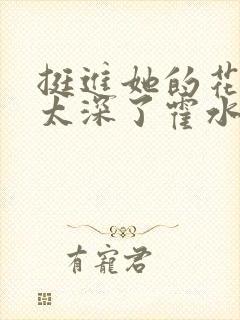 挺进她的花
太深了霍水
有宠君